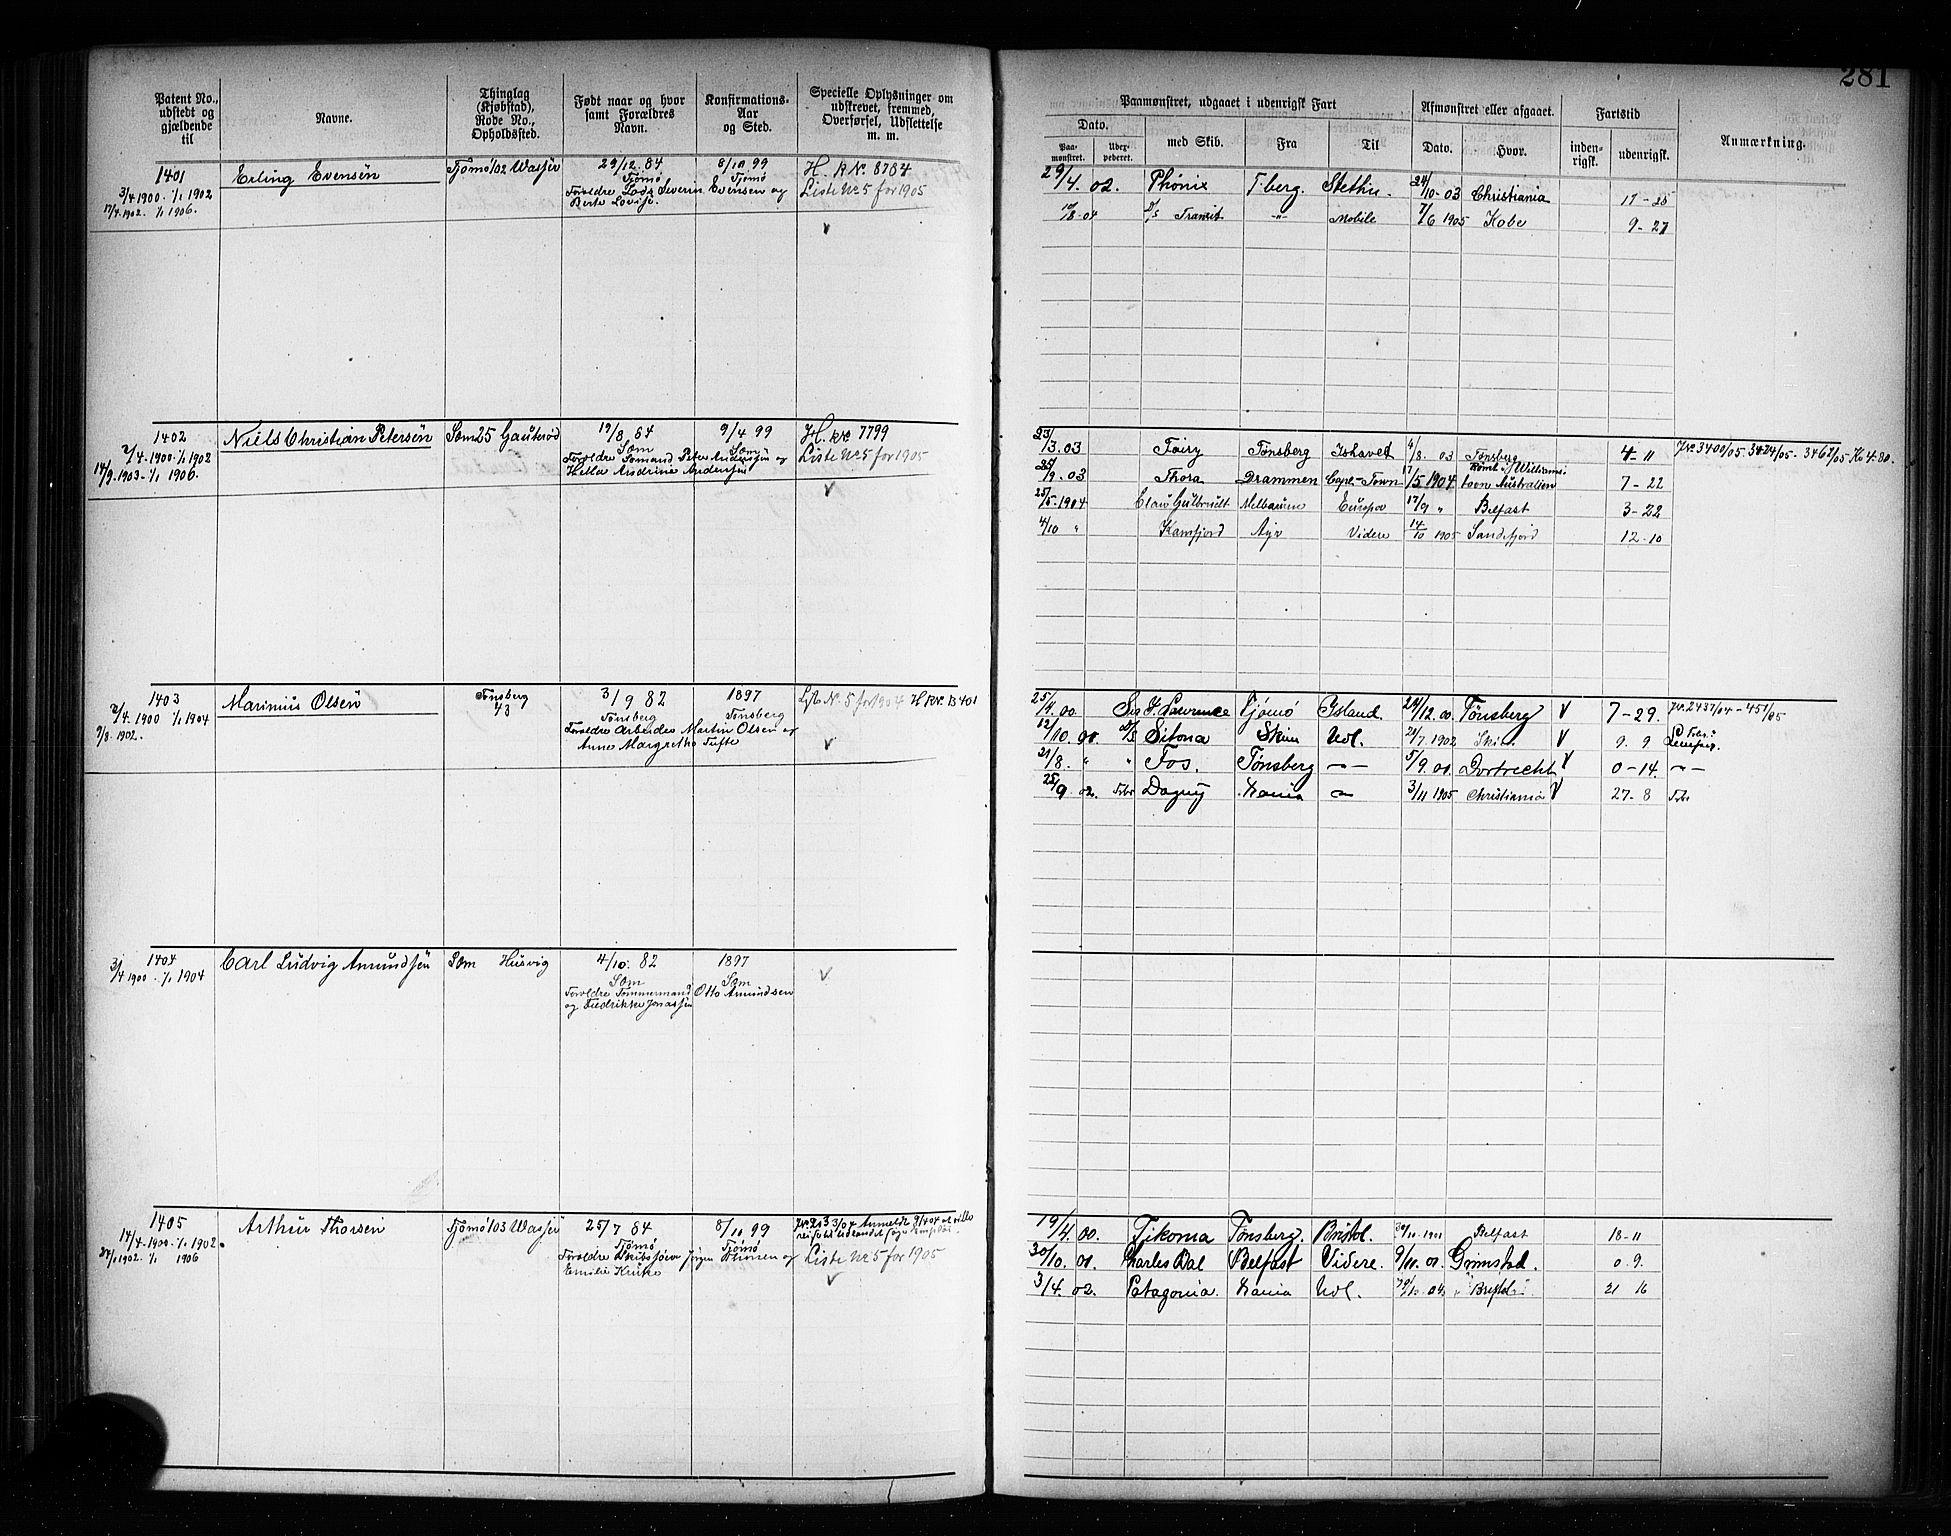 281
Patent No., udstedt og gjældende til
Navne.
Thinglag (Kjøbstad), Rode No., Opholdssted.
Født naar og hvor samt Forældres Navn.
Konfirmations-Aar og Sted.
Specielle Oplysninger om udskrevet, fremmed, Overførsel, Udslettelse m. m.
Paamønstret, udgaaet i udenrigsk Fart
Afmønstret eller afgaaet.
Fartstid
Anmærkning.
Dato.
med Skib.
Fra
Til
Dato.
Hvor.
inden-rigsk.
udenrigsk.
Paa-mønstret.
1401
3/4 1900 - 1/1 1902
17/4 1902. 1/1 1906.
Erling Evensen
Tjømø 102 Wasser
29/12. 84
Tjømø
8/10 99
Tjømø
Forældre Lods Severin Evensen og
Berte Lovise.
H. R No. 8784
Liste No 5 for 1905
29/4. 02. Phönix T.berg. 24/10 - 03 Christiania 17 - 25
10/8 04 D/S Transit -"- Mobile 7/6 1905 Kobe 9 - 27
1402
2/4. 1900. 1/1 1902
14/9 1903. 1/1 1906.
Niels Christian Petersen
Sem 25 Gauterød
19/8 84
Sem
9/4 99
Sem
Forældre Sømand Peter Andersen og
Helle Andrine Andersen
H. No 7799
Liste No 5 for 1905
23/3. 03 Fairy Tønsberg Ishavet 4/8 03 Tønsberg 4 - 11
Jr. 3400/05 - 3424/05 - 3467/05
25/9. 03 Thora Drammen Cape-Town 17/5 1904 Australien 7 - 22
25/5. 1904 Melbourne Europa 17/9 " Belfast 3 - 22
4/10 " Kamfjord Ayr Videre 14/10 1905 Sandefjord 12 - 10
1403
2/4. 1900 1/1 1904
9/8. 1902.
Marinius Olsen
Tønsberg
43
3/9 82
Tønsberg
1897
Tønsberg
Forældre Arbeider Martin Olsen og
Anne Margrethe Tufte
No. 5 for 1904 H RNr. B 401
25/4. 00 Tjømø Island. 24/12. 00. Tønsberg V 7 - 29.
Jr. 2437/04 - 451/05
12/10. 00. D/S Sitona Skien Udl. 21/7. 1902 Skien V 9. 9
21/8. " " Fos. Tønsberg - " - 5/9. 00. Dortrecht V 0 - 14. - " -
25/9 02. Dagny Xania - " - 3/11 1905 Christiania V 27 - 8
1404
3/4 1900 - 1/1 1904
Carl Ludvig Amundsen
Sem Husvig
4/10. 82
Sem
1897
Sem
Forældre Tømmermand Otto Amundsen
og Fredrikke Jonassen
1405
14/4. 1900 - 1/1 1902.
1/1 1906
Arthur Thorsen
Tjømø 103 Wasser
25/7 84
Tjømø
8/10 99
Tjømø
Forældre Skibstømr. Jørgen Thorsen og
Emilie
Liste No 5 for 1905
19/4. 00. Tikoma Tønsberg. Bristol. Belfast 18 - 11
30/10. 01. Charles Dal Belfast Videre. 9/11. 01. Grimstad. 0. 9.
3/4. 02. Patagonia. Xania Udl. 21 16